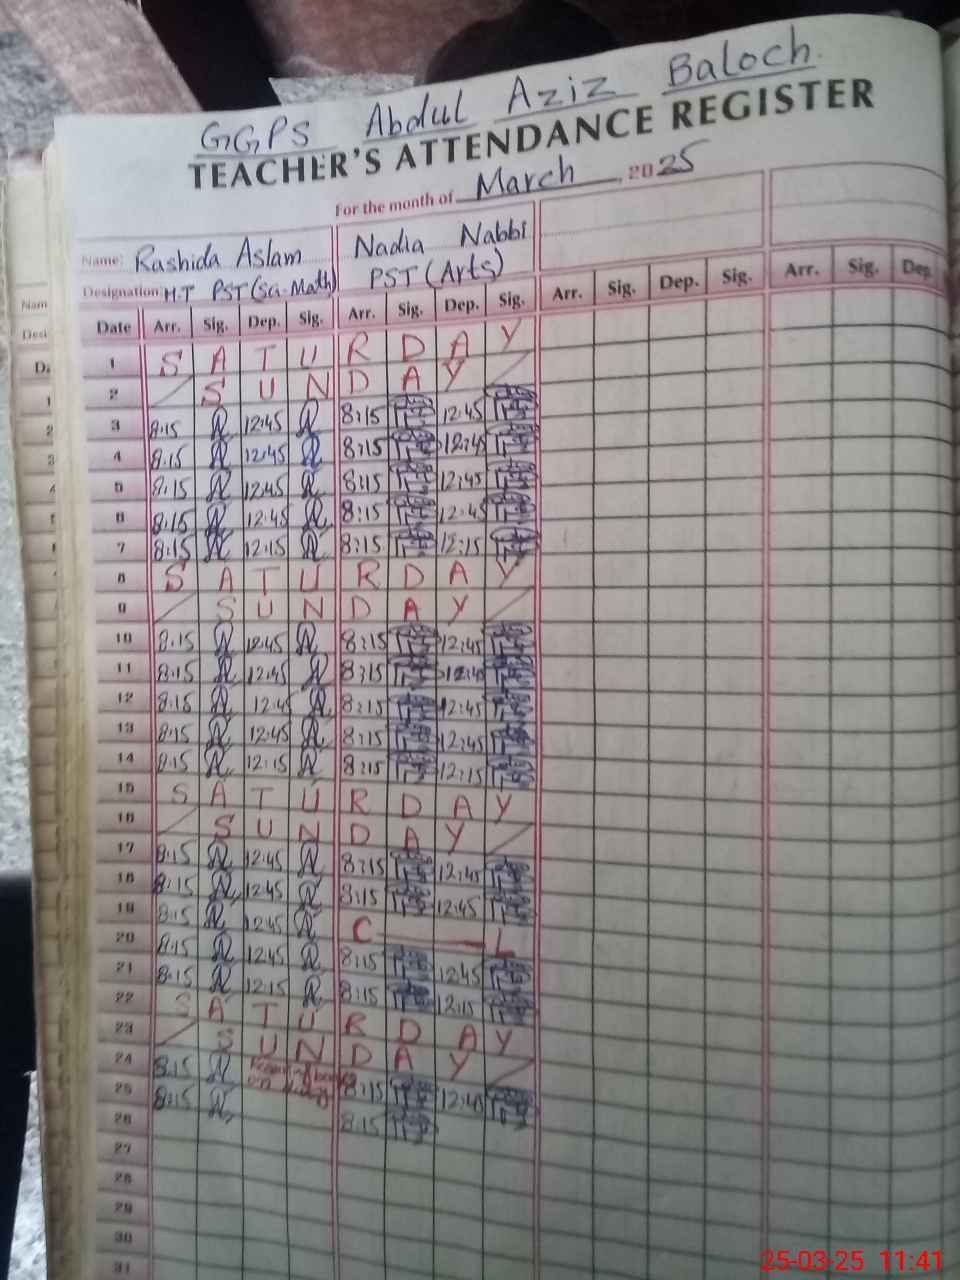 GGPS Abdul Aziz Baloch.
TEACHER'S ATTENDANCE REGISTER
For the month of March, 2025
Name: Rashida Aslam Nadia Nabbi
Designation: H.T PST (Sci-Math) PST (Arts)
Date Arr. Sig. Dep. Sig. Arr. Sig. Dep. Sig. Arr. Sig. Dep. Sig. Arr. Sig. Dep.
1 S A T U R D A Y
2 S U N D A Y
3 8:15 12:45 8:15 12:45
4 8:15 12:45 8:15 12:45
5 8:15 12:45 8:15 12:45
6 8:15 12:45 8:15 12:45
7 8:15 12:15 8:15 12:15
8 S A T U R D A Y
9 S U N D A Y
10 8:15 12:45 8:15 12:45
11 8:15 12:45 8:15 12:45
12 8:15 12:45 8:15 12:45
13 8:15 12:45 8:15 12:45
14 8:15 12:15 8:15 12:15
15 S A T U R D A Y
16 S U N D A Y
17 8:15 12:45 8:15 12:45
18 8:15 12:45 8:15 12:45
19 8:15 12:45 C L
20 8:15 12:45 8:15 12:45
21 8:15 12:15 8:15 12:15
22 S A T U R D A Y
23 S U N D A Y
24 8:15 8:15 12:40
25 8:15 8:15
26
27
28
29
30
31
25-03-25 11:41